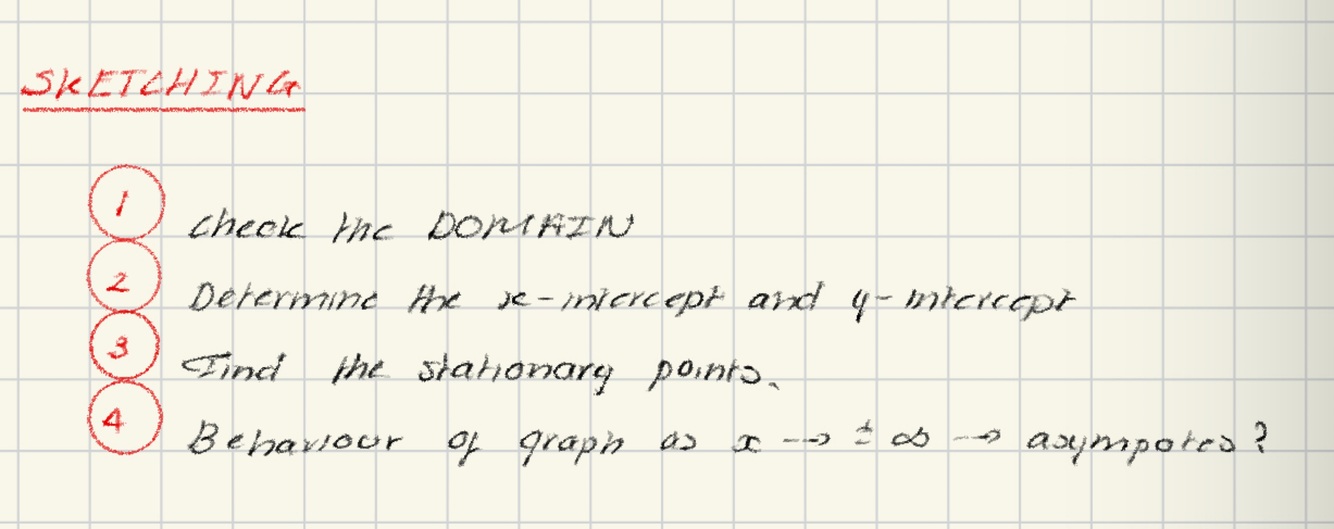 SKETCHING
1 Check the DOMAIN
2 Determine the x-intercept and y-intercept
3 Find the stationary points.
4 Behaviour of graph as x → ± ∞ → asympotes?